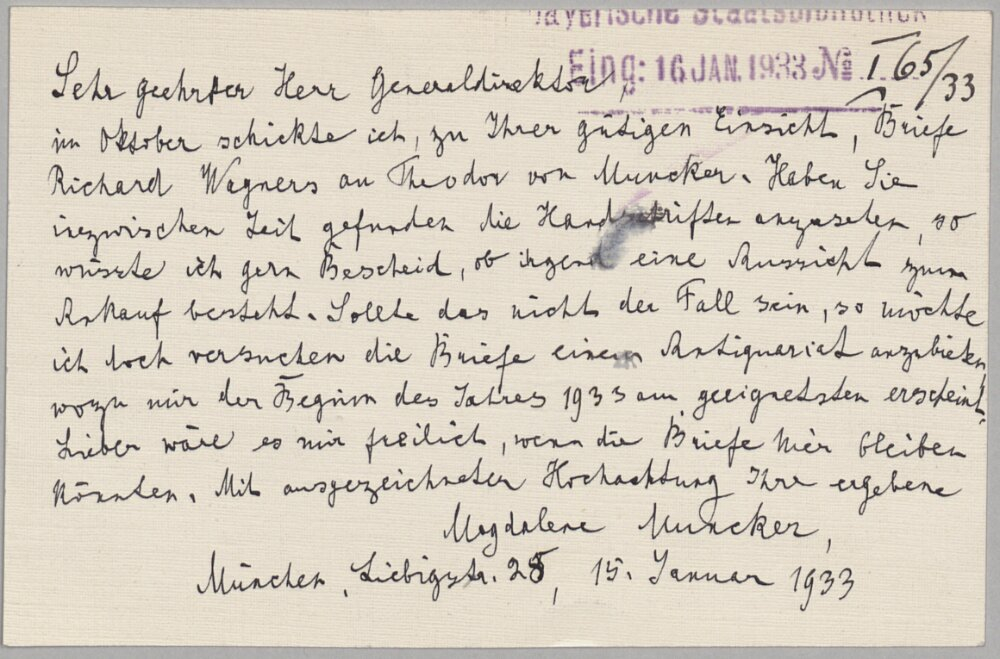 Bayerische Staatsbibliothek
Eing: 16 JAN. 1933 №
I 65/33
Sehr geehrter Herr Generaldirektor,
im Oktober schickte ich, zu Ihrer gütigen Einsicht, Briefe
Richard Wagners an Theodor von Muncker. Haben Sie
inzwischen Zeit gefunden die Handschriften anzusehen, so
wüszte ich gern Bescheid, ob irgend eine Aussicht zum
Ankauf besteht. Sollte das nicht der Fall sein, so möchte
ich doch versuchen die Briefe einem Antiquariat anzubieten,
wozu mir der Beginn des Jahres 1933 am geeignetsten erscheint.
Lieber wäre es mir freilich, wenn die Briefe hier bleiben
könnten. Mit ausgezeichneter Hochachtung Ihre ergebene
Magdalene Muncker,
München, Liebigstr. 28, 15. Januar 1933